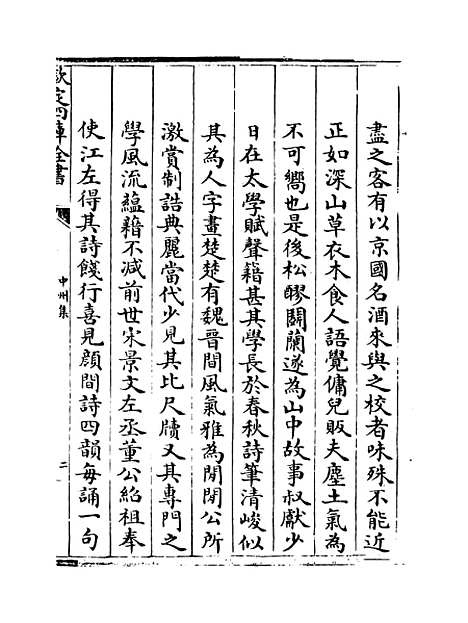 盡之客有以京國名酒來與之校者味殊不能近
正如深山草衣木食人語覺傭兒販夫塵土氣為
不可嚮也是後松醪闢蘭遂為山中故事叔獻少
日在太學賦聲籍甚其學長於春秋詩筆清峻似
其為人字畫楚楚有魏晉間風氣雅為閑閑公所
激賞制誥典麗當代少見其比尺牘又其專門之
學風流蘊藉不減前世宋景文左丞董公紹祖奉
使江左得其詩餞行喜見顔間詩四韻每誦一句
欽定四庫全書
中州集
二